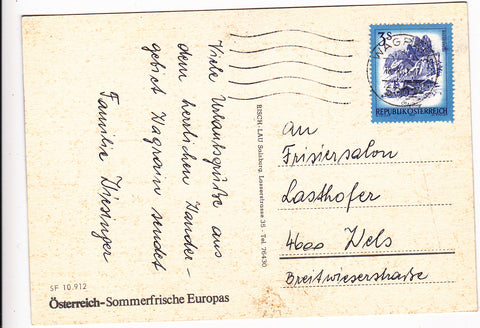 Viele Urlaubsgrüße aus
dem herrlichen Wander-
gebiet Wagrain sendet
Familie
SF 10.912
Österreich-Sommerfrische Europas
RISCH-LAU Salzburg, Lasserstrasse 35, Tel. 76430
3s
REPUBLIK ÖSTERREICH
WAGR
An
Frisiersalon
Lasthofer
4600 Wels
Breitwieserstraße